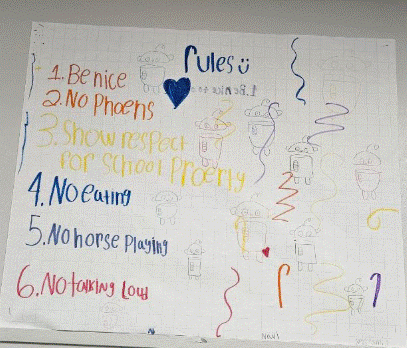 rules
1. Be nice
2. No Phoens
3. Show respect
for school Proerly
4. No eating
5. No horse Playing
6. No talking Loud